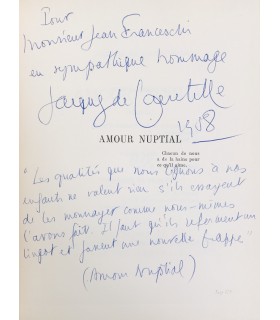 Pour
Monsieur Jean Franceschi
en sympathique hommage
Jacques de Lacretelle
1958
AMOUR NUPTIAL
Chacun de nous
a de la haine pour
ce qu'il aime.
"Les qualités que nous léguons à nos
enfants ne valent rien s'ils essayent
de les monnayer comme nous-mêmes
l'avons fait. Il faut qu'ils reforment un
lingot et fassent une nouvelle frappe"
(Amour Nuptial)